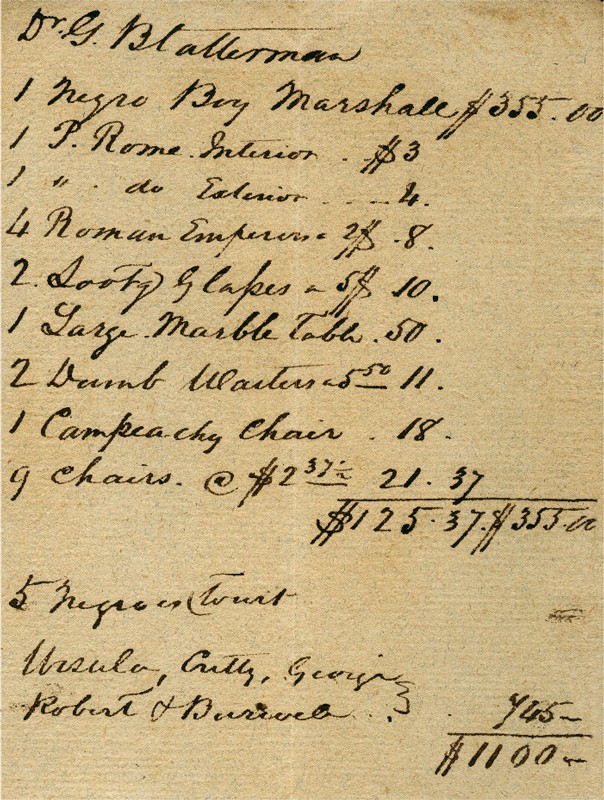 Dr. G. Blatterman
1 Negro Boy Marshall $355.00
1 P. Rome Interior . $3
1 " do Exterior . . . 4.
4 Roman Emperors a 2$ . 8.
2. Glasses a 5$ 10.
1 Large Marble Table . 50.
2 Dumb Waiters a 5 50 11.
1 Campeachy Chair . 18.
9 Chairs. @ $2 37½ 21.37
$125.37. $355.00
5 Negroes
Ursula, George
Robert & Burwell . . } . 745–
$1100–